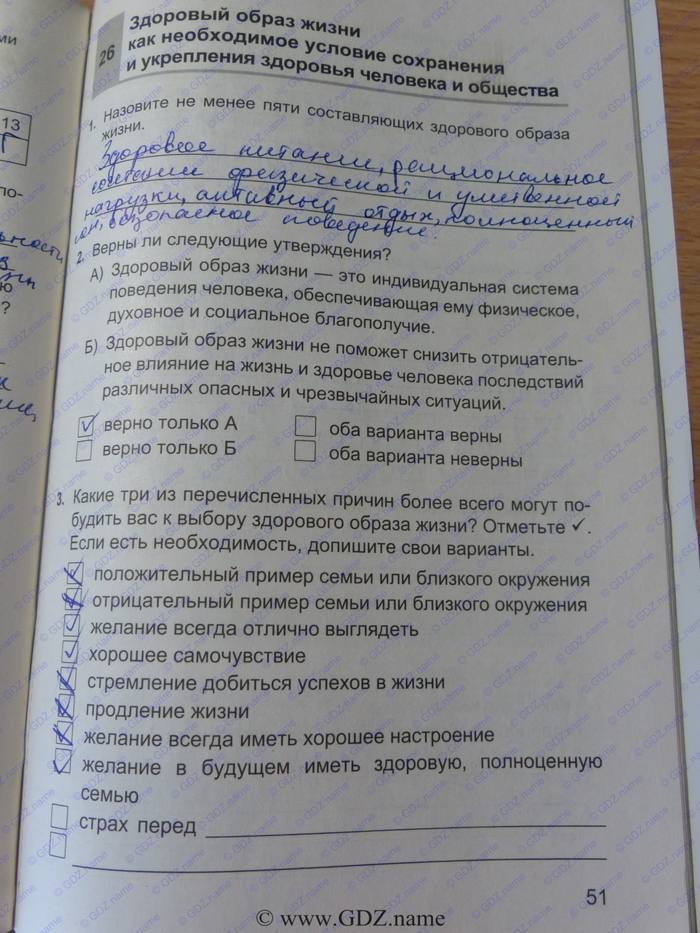 26
Здоровый образ жизни
как необходимое условие сохранения
и укрепления здоровья человека и общества
1. Назовите не менее пяти составляющих здорового образа
жизни.
Здоровое питание, рациональное
сочетание физической и умственной
нагрузки, активный отдых, полноценный
сон, безопасное поведение.
2. Верны ли следующие утверждения?
А) Здоровый образ жизни — это индивидуальная система
поведения человека, обеспечивающая ему физическое,
духовное и социальное благополучие.
Б) Здоровый образ жизни не поможет снизить отрицатель-
ное влияние на жизнь и здоровье человека последствий
различных опасных и чрезвычайных ситуаций.
верно только А оба варианта верны
верно только Б оба варианта неверны
3. Какие три из перечисленных причин более всего могут по-
будить вас к выбору здорового образа жизни? Отметьте ✓.
Если есть необходимость, допишите свои варианты.
положительный пример семьи или близкого окружения
отрицательный пример семьи или близкого окружения
желание всегда отлично выглядеть
хорошее самочувствие
стремление добиться успехов в жизни
продление жизни
желание всегда иметь хорошее настроение
желание в будущем иметь здоровую, полноценную
семью
страх перед
51
13
© www.GDZ.name